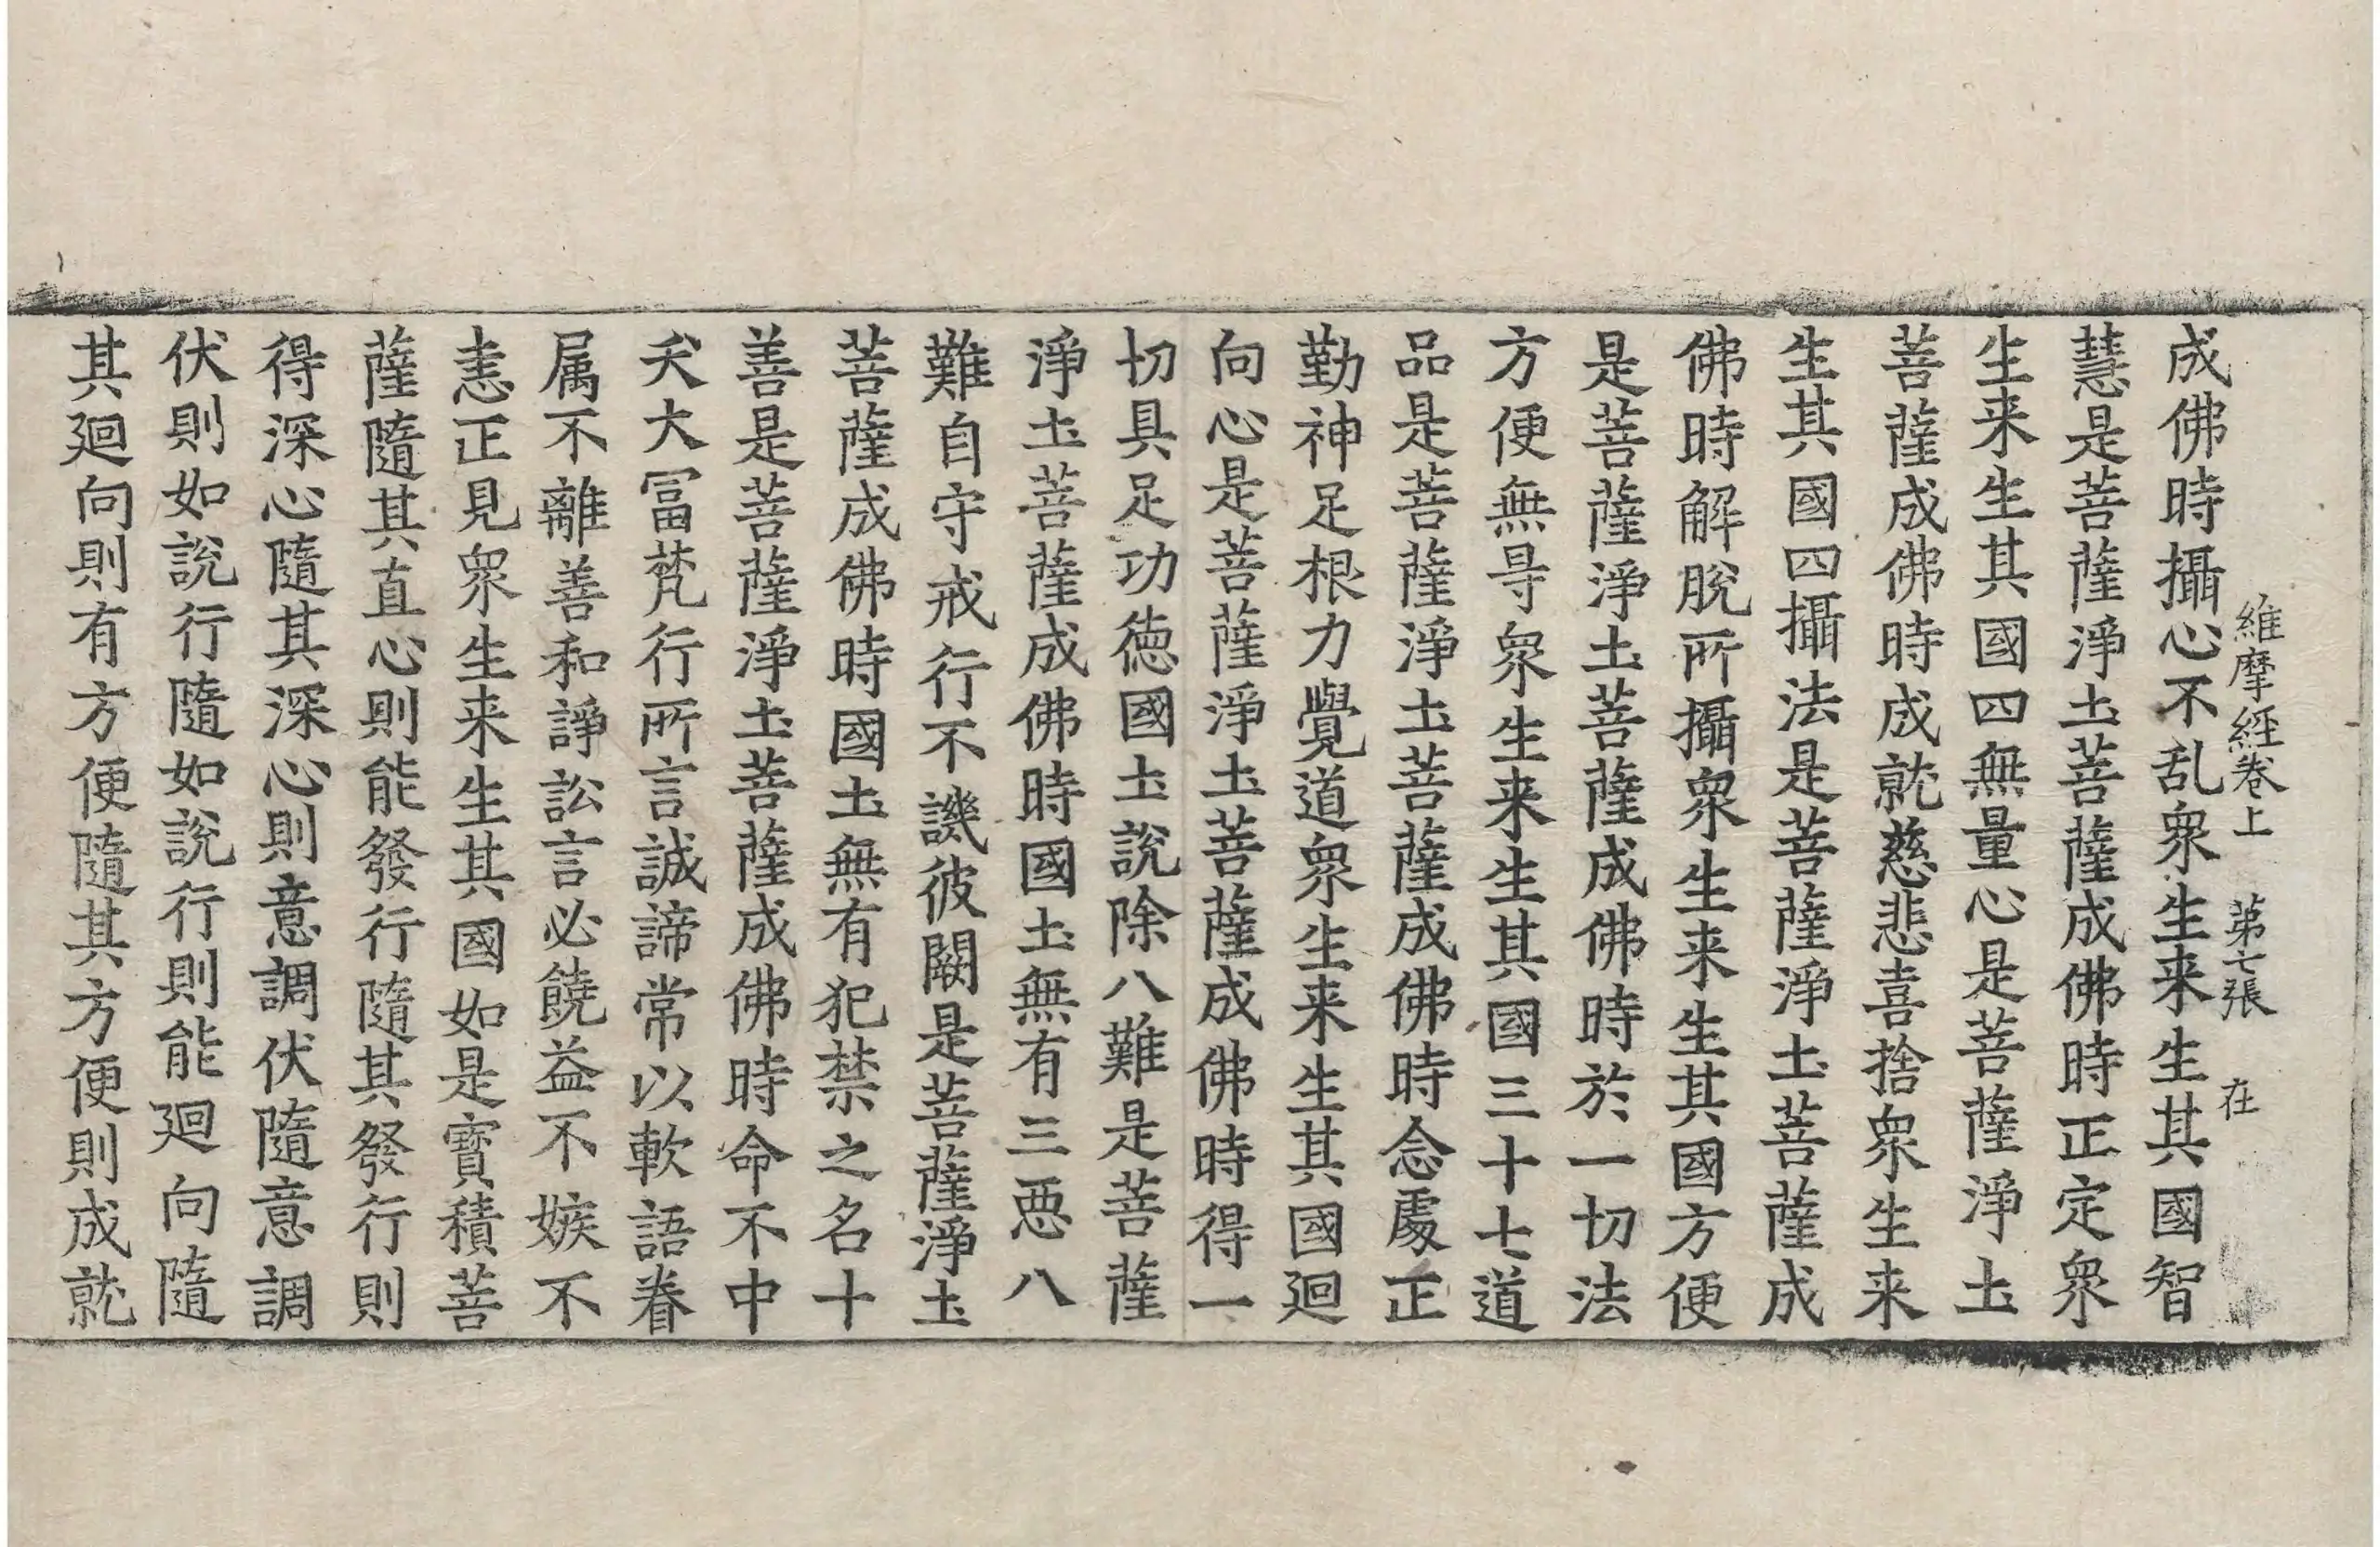 維摩經卷上 第七張 在
成佛時攝心不乱衆生来生其國智
慧是菩薩淨土菩薩成佛時正定衆
生来生其國四無量心是菩薩淨土
菩薩成佛時成就慈悲喜捨衆生来
生其國四攝法是菩薩淨土菩薩成
佛時解脫所攝衆生来生其國方便
是菩薩淨土菩薩成佛時於一切法
方便無㝵衆生来生其國三十七道
品是菩薩淨土菩薩成佛時念處正
勤神足根力覺道衆生来生其國廻
向心是菩薩淨土菩薩成佛時得一
切具足功徳國土說除八難是菩薩
淨土菩薩成佛時國土無有三惡八
難自守戒行不譏彼闕是菩薩淨土
菩薩成佛時國土無有犯禁之名十
善是菩薩淨土菩薩成佛時命不中
夭大冨梵行所言誠諦常以軟語眷
属不離善和諍訟言必饒益不嫉不
恚正見衆生来生其國如是寳積菩
薩隨其直心則能發行隨其發行則
得深心隨其深心則意調伏隨意調
伏則如說行隨如說行則能廻向隨
其廻向則有方便隨其方便則成就